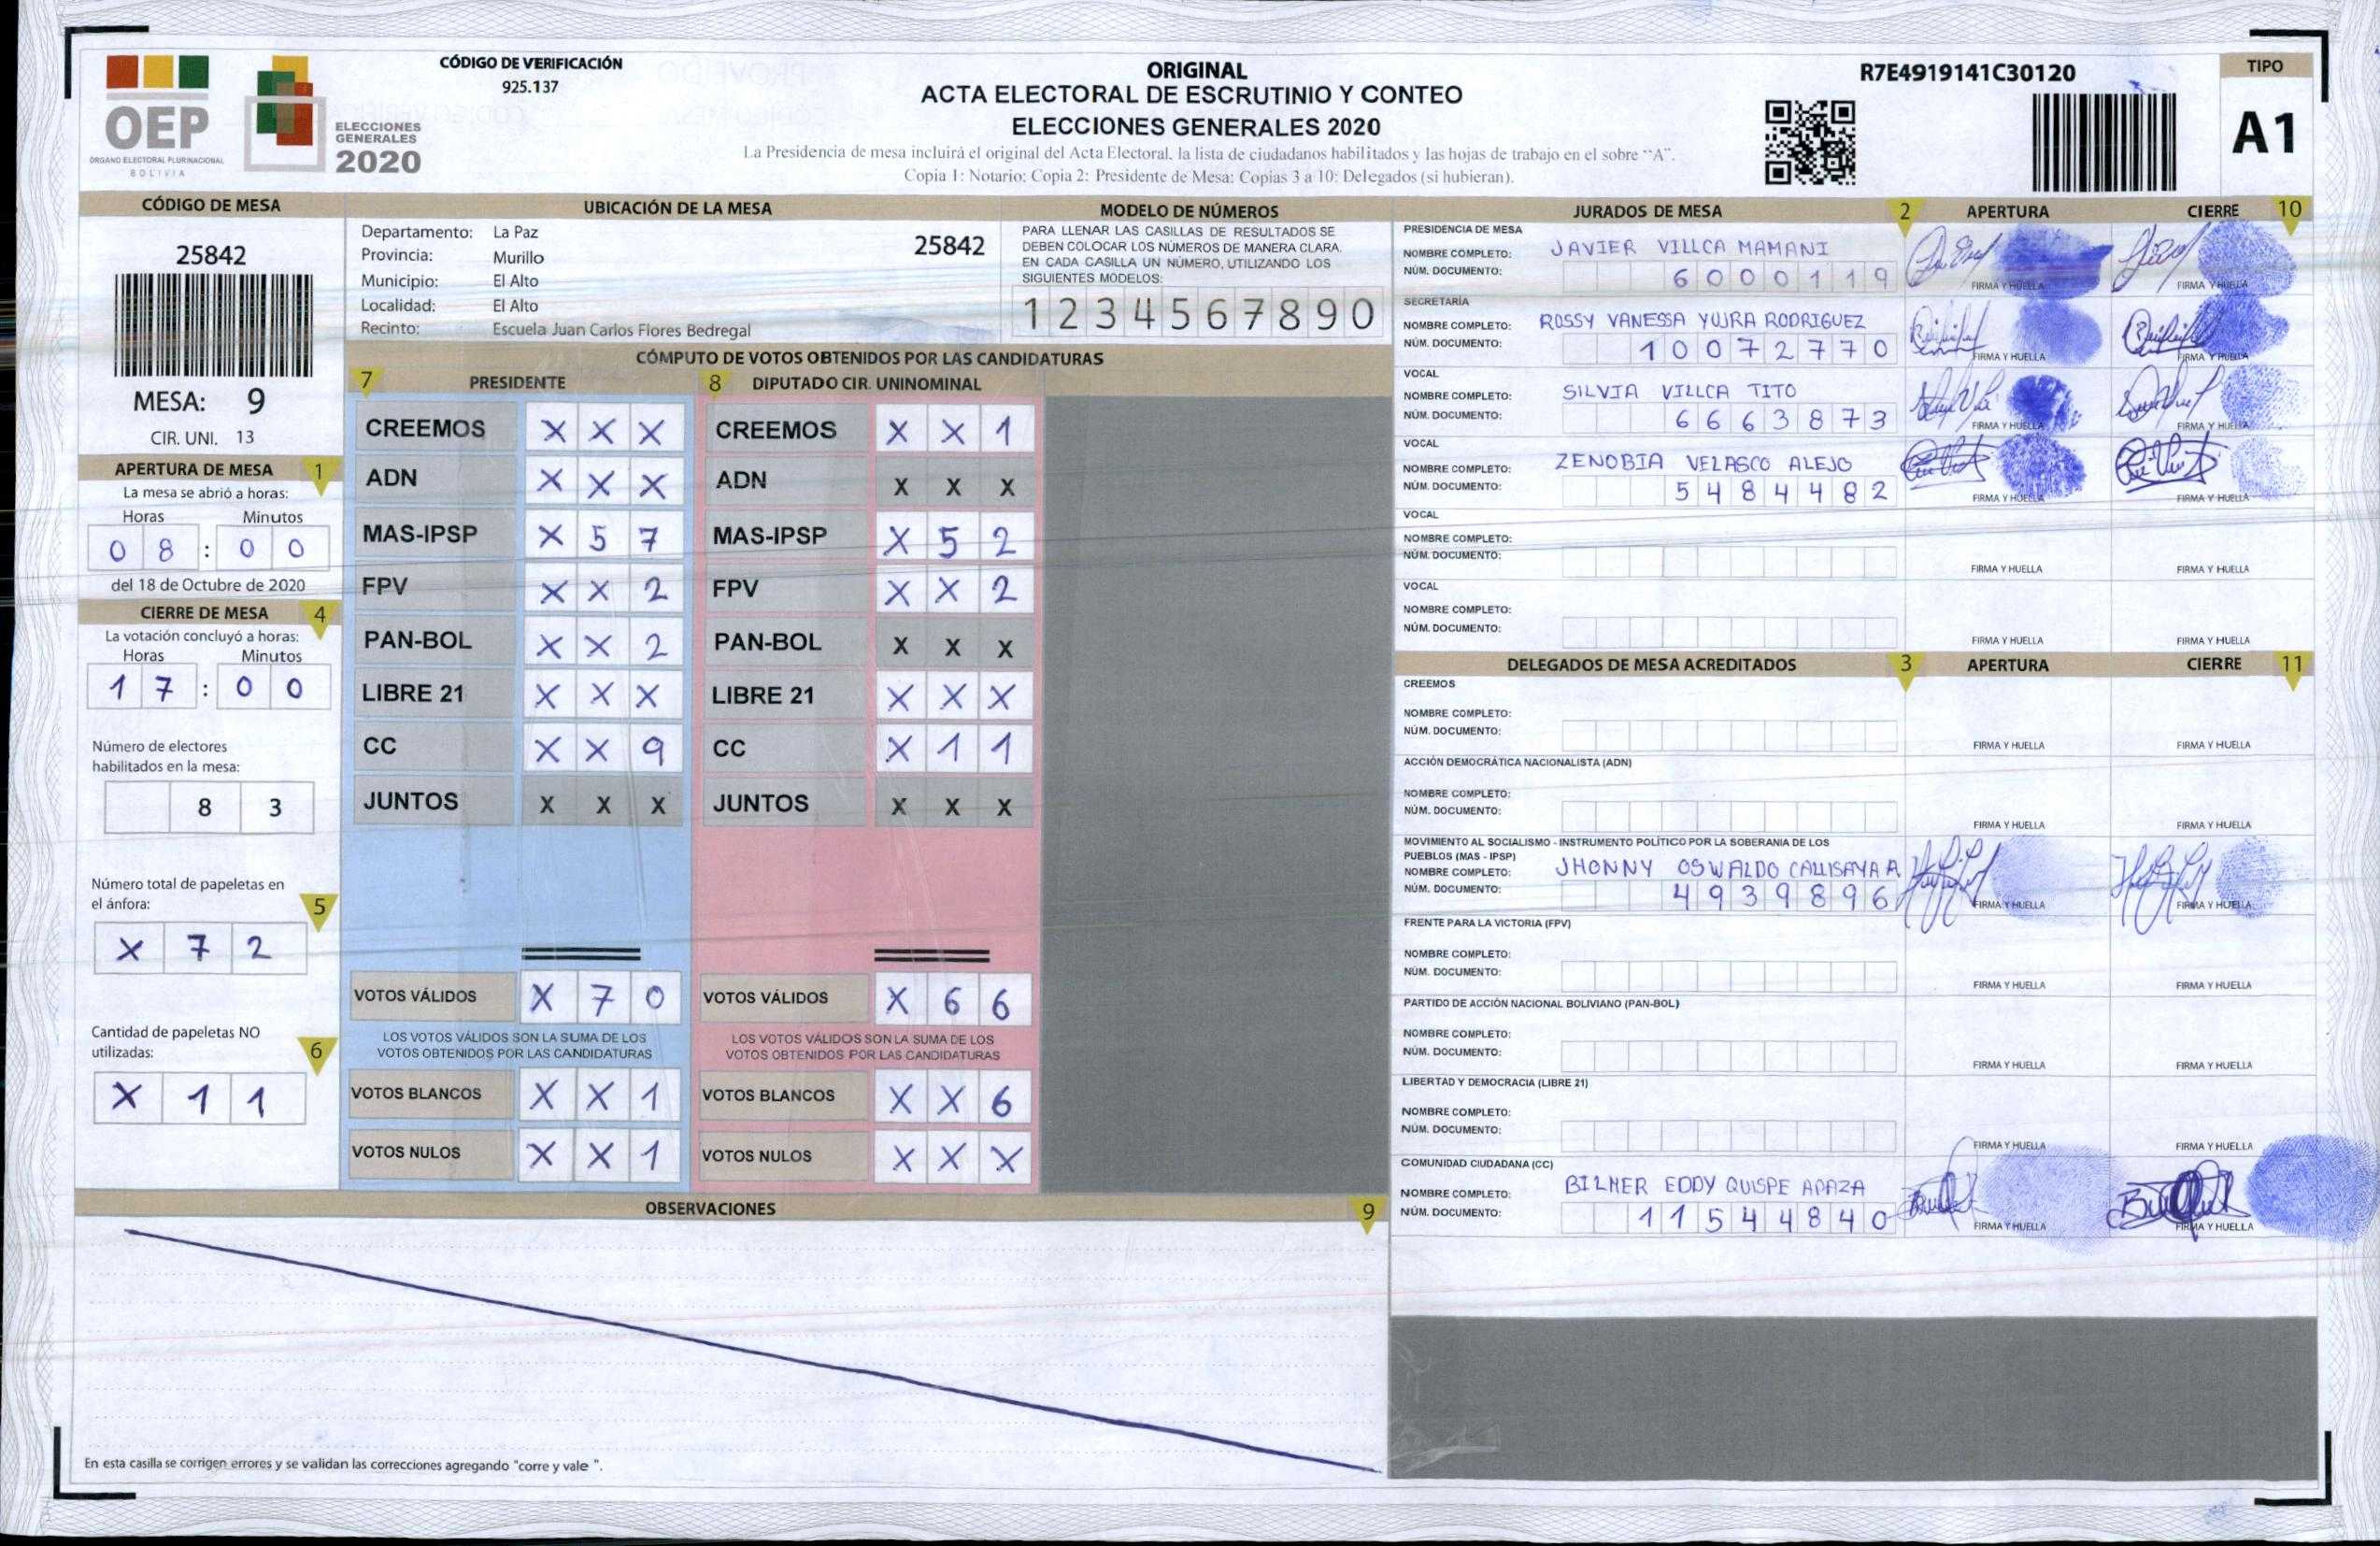 CÓDIGO DE VERIFICACIÓN
925.137
OEP
ÓRGANO ELECTORAL PLURINACIONAL
BOLIVIA
ELECCIONES
GENERALES
2020
ORIGINAL
ACTA ELECTORAL DE ESCRUTINIO Y CONTEO
ELECCIONES GENERALES 2020
La Presidencia de mesa incluirá el original del Acta Electoral, la lista de ciudadanos habilitados y las hojas de trabajo en el sobre "A".
Copia 1: Notario; Copia 2: Presidente de Mesa; Copias 3 a 10: Delegados (si hubieran).
R7E4919141C30120
TIPO
A1
CÓDIGO DE MESA
25842
MESA: 9
CIR. UNI. 13
APERTURA DE MESA 1
La mesa se abrió a horas:
Horas Minutos
0 8 : 0 0
del 18 de Octubre de 2020
CIERRE DE MESA 4
La votación concluyó a horas:
Horas Minutos
1 7 : 0 0
Número de electores
habilitados en la mesa:
8 3
Número total de papeletas en
el ánfora: 5
X 7 2
Cantidad de papeletas NO
utilizadas: 6
X 1 1
UBICACIÓN DE LA MESA
Departamento: La Paz
25842
Provincia: Murillo
Municipio: El Alto
Localidad: El Alto
Recinto: Escuela Juan Carlos Flores Bedregal
MODELO DE NÚMEROS
PARA LLENAR LAS CASILLAS DE RESULTADOS SE
DEBEN COLOCAR LOS NÚMEROS DE MANERA CLARA.
EN CADA CASILLA UN NÚMERO, UTILIZANDO LOS
SIGUIENTES MODELOS:
1 2 3 4 5 6 7 8 9 0
CÓMPUTO DE VOTOS OBTENIDOS POR LAS CANDIDATURAS
7 PRESIDENTE 8 DIPUTADO CIR. UNINOMINAL
CREEMOS X X X CREEMOS X X 1
ADN X X X ADN X X X
MAS-IPSP X 5 7 MAS-IPSP X 5 2
FPV X X 2 FPV X X 2
PAN-BOL X X 2 PAN-BOL X X X
LIBRE 21 X X X LIBRE 21 X X X
CC X X 9 CC X 1 1
JUNTOS X X X JUNTOS X X X
VOTOS VÁLIDOS X 7 0 VOTOS VÁLIDOS X 6 6
LOS VOTOS VÁLIDOS SON LA SUMA DE LOS LOS VOTOS VÁLIDOS SON LA SUMA DE LOS
VOTOS OBTENIDOS POR LAS CANDIDATURAS VOTOS OBTENIDOS POR LAS CANDIDATURAS
VOTOS BLANCOS X X 1 VOTOS BLANCOS X X 6
VOTOS NULOS X X 1 VOTOS NULOS X X X
OBSERVACIONES 9
En esta casilla se corrigen errores y se validan las correcciones agregando "corre y vale ".
JURADOS DE MESA 2 APERTURA CIERRE 10
PRESIDENCIA DE MESA
NOMBRE COMPLETO: JAVIER VILLCA MAMANI
NÚM. DOCUMENTO: 6 0 0 0 1 1 9
FIRMA Y HUELLA FIRMA Y HUELLA
SECRETARÍA
NOMBRE COMPLETO: ROSSY VANESSA YUJRA RODRIGUEZ
NÚM. DOCUMENTO: 1 0 0 7 2 7 7 0
FIRMA Y HUELLA FIRMA Y HUELLA
VOCAL
NOMBRE COMPLETO: SILVIA VILLCA TITO
NÚM. DOCUMENTO: 6 6 6 3 8 7 3
FIRMA Y HUELLA FIRMA Y HUELLA
VOCAL
NOMBRE COMPLETO: ZENOBIA VELASCO ALEJO
NÚM. DOCUMENTO: 5 4 8 4 4 8 2
FIRMA Y HUELLA FIRMA Y HUELLA
VOCAL
NOMBRE COMPLETO:
NÚM. DOCUMENTO:
FIRMA Y HUELLA FIRMA Y HUELLA
VOCAL
NOMBRE COMPLETO:
NÚM. DOCUMENTO:
FIRMA Y HUELLA FIRMA Y HUELLA
DELEGADOS DE MESA ACREDITADOS 3 APERTURA CIERRE 11
CREEMOS
NOMBRE COMPLETO:
NÚM. DOCUMENTO:
FIRMA Y HUELLA FIRMA Y HUELLA
ACCIÓN DEMOCRÁTICA NACIONALISTA (ADN)
NOMBRE COMPLETO:
NÚM. DOCUMENTO:
FIRMA Y HUELLA FIRMA Y HUELLA
MOVIMIENTO AL SOCIALISMO - INSTRUMENTO POLÍTICO POR LA SOBERANIA DE LOS
PUEBLOS (MAS - IPSP)
NOMBRE COMPLETO: JHONNY OSWALDO CALLISAYA A
NÚM. DOCUMENTO: 4 9 3 9 8 9 6
FIRMA Y HUELLA FIRMA Y HUELLA
FRENTE PARA LA VICTORIA (FPV)
NOMBRE COMPLETO:
NÚM. DOCUMENTO:
FIRMA Y HUELLA FIRMA Y HUELLA
PARTIDO DE ACCIÓN NACIONAL BOLIVIANO (PAN-BOL)
NOMBRE COMPLETO:
NÚM. DOCUMENTO:
FIRMA Y HUELLA FIRMA Y HUELLA
LIBERTAD Y DEMOCRACIA (LIBRE 21)
NOMBRE COMPLETO:
NÚM. DOCUMENTO:
FIRMA Y HUELLA FIRMA Y HUELLA
COMUNIDAD CIUDADANA (CC)
NOMBRE COMPLETO: BILMER EDDY QUISPE APAZA
NÚM. DOCUMENTO: 1 1 5 4 4 8 4 0
FIRMA Y HUELLA FIRMA Y HUELLA